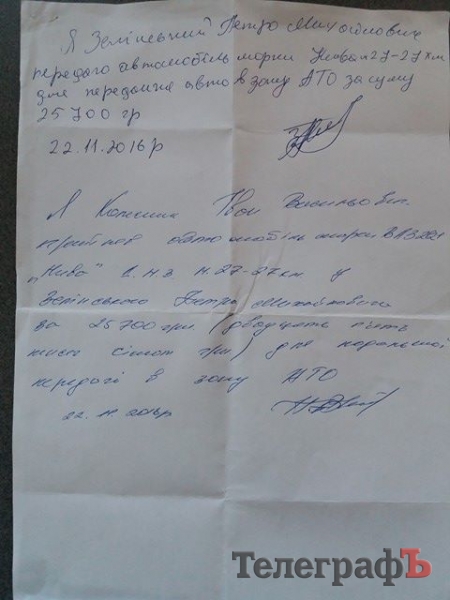 Я Зелінський Петро Михайлович
передаю автомобіль марки Нива н 27-27 км
для передачи авто в зону АТО за суму
25 700 гр
22.11.2016 р
Я Колесник Іван Васильович
прийняв автомобіль марки ВАЗ 2121
"Нива" д.н.з. н.27-27 км у
Зелінського Петра Михайловича
за 25 700 грн (двадцять пять
тисяч сімсот грн) для подальшої
передачі в зону АТО
22.11.2016р
ТелеграфЪ